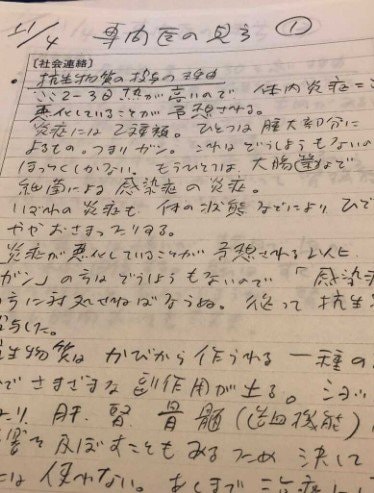 11/4 専門医の見方 ①
[社会連絡]
・抗生物質の投与の理由
ここ2-3日熱が高いので 体内炎症=
悪化していることが予想される。
炎症には乙種類。ひとつは腫大部分に
よるもの。つまりガン。これはどうしようもないの
ほっとくしかない。もうひとつは、大腸(菌)など
細菌による感染症の炎症。
いずれの炎症も、体の状態などにより、ひど
ややおさまったりする。
炎症が悪化していることが予想される以上、
ガン」の方はどうしようもないので「感染
方に対処せねばならぬ。従って抗生
投与した。
生物質は かびから作られる 一種の
でさまざまな副作用が出る。ショッ
肝、腎、骨髄(造血機能)
影響を及ぼすこともあるため 決して
には使わない。あくまで治療に